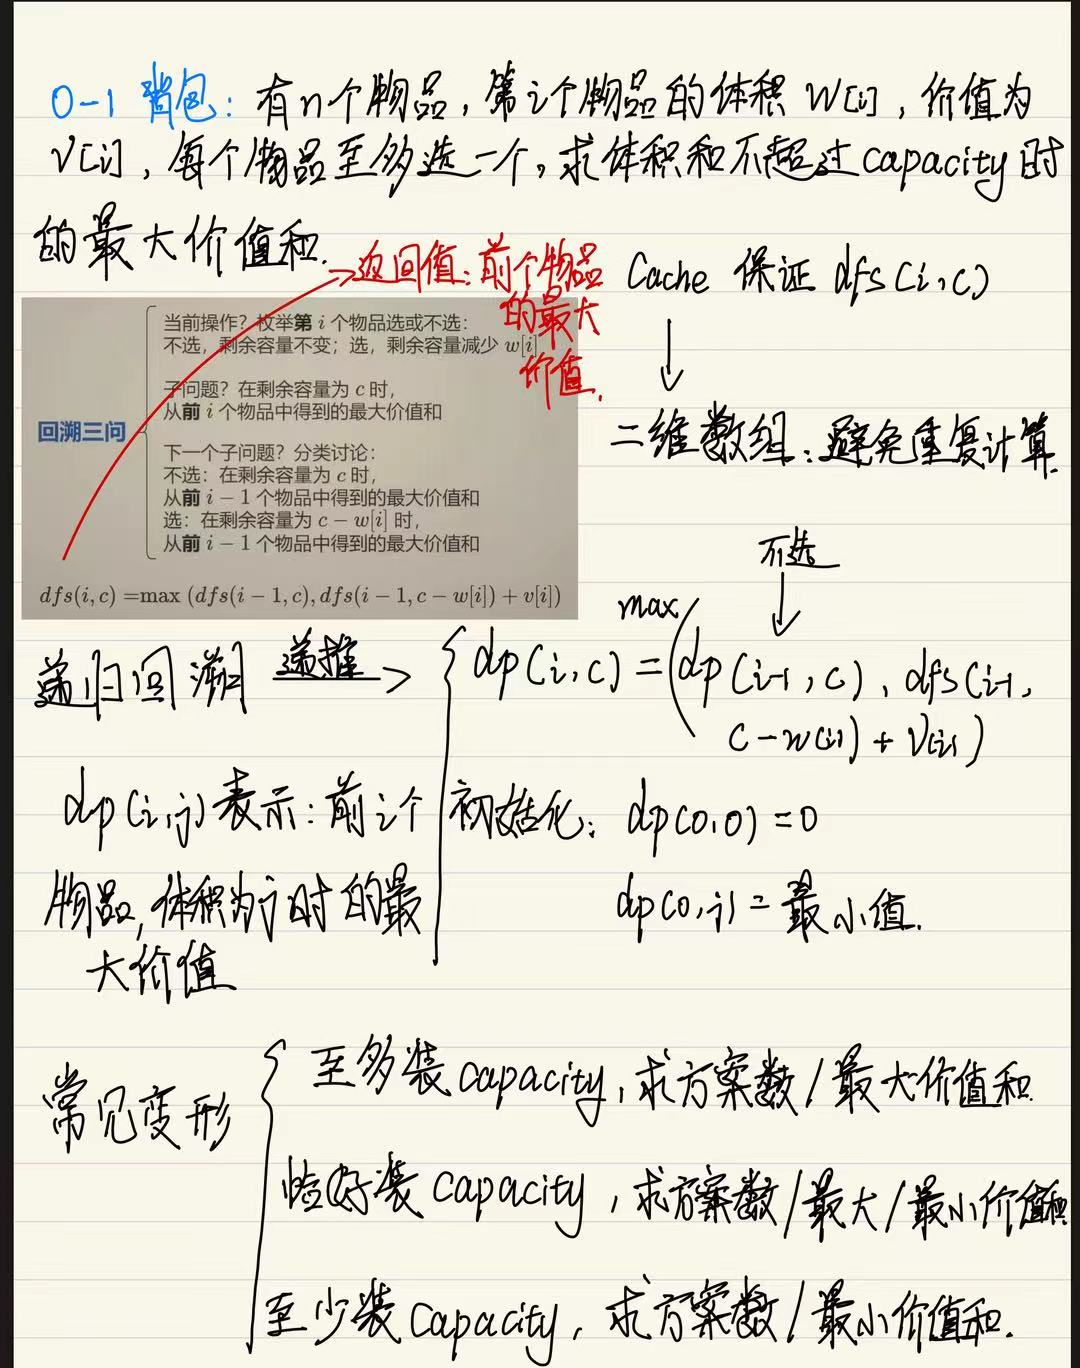 0-1 背包：有n个物品，第i个物品的体积 w[i]，价值为
v[i]，每个物品至多选一个，求体积和不超过capacity时
的最大价值和.
返回值：前个物品
的最大
价值.
Cache 保证 dfs(i,c)
↓
二维数组：避免重复计算.
当前操作？枚举第 i 个物品选或不选：
不选，剩余容量不变；选，剩余容量减少 w[i]
子问题？在剩余容量为 c 时，
从前 i 个物品中得到的最大价值和
回溯三问
下一个子问题？分类讨论：
不选：在剩余容量为 c 时，
从前 i − 1 个物品中得到的最大价值和
选：在剩余容量为 c − w[i] 时，
从前 i − 1 个物品中得到的最大价值和
dfs(i, c) =max (dfs(i − 1, c), dfs(i − 1, c − w[i]) + v[i])
递归回溯 递推→
不选
↓
max
dp(i,c) = (dp(i-1,c), dfs(i-1,
c-w(i)) + v(i))
dp(i,j)表示：前i个
物品，体积为j时的最
大价值
初始化：dp(0,0)=0
dp(0,j)=最小值.
常见变形
至多装capacity，求方案数/最大价值和.
恰好装capacity，求方案数/最大/最小价值和.
至少装capacity，求方案数/最小价值和.